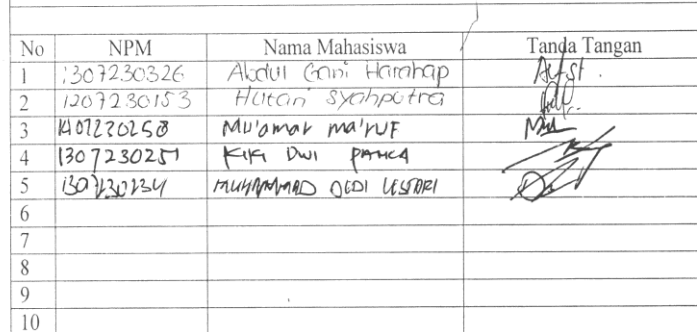 No NPM Nama Mahasiswa Tanda Tangan
1 1307230326 Abdul Gani Harahap
2 1207230153 Hutari Syahputra
3 1407230258 Mu'amar ma'ruf
4 1307230251 KIKI DWI PANCA
5 1307230234 MUHAMMAD DEDI LESTARI
6
7
8
9
10